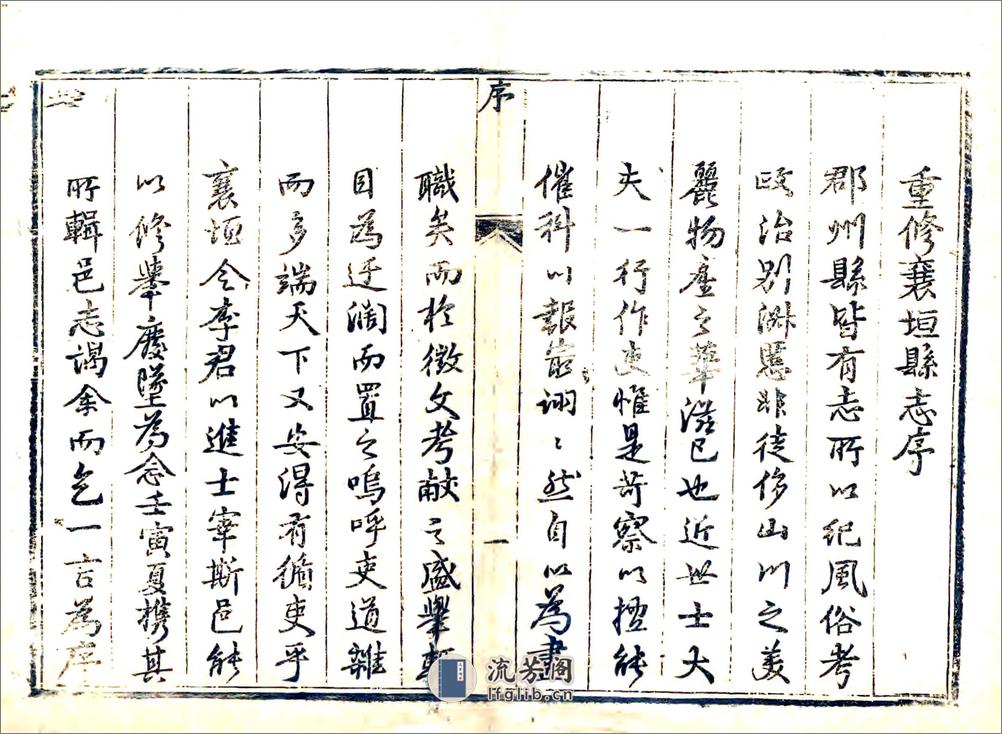 重修襄垣縣志序
郡州縣皆有志所以紀風俗考
政治別淑慝非徒侈山川之美
麗物產之華滋已也近世士大
夫一行作吏惟是苛察以擅能
催科以報最詡〻然自以為盡
序
一
職矣而於徵文考獻之盛舉輒
目為迂濶而置之嗚呼吏道雜
而多端天下又安得有循吏乎
襄垣令李君以進士宰斯邑能
以修舉廢墜為念壬寅夏携其
所輯邑志謁余而乞一言為序
流芳阁
lfglib.cn